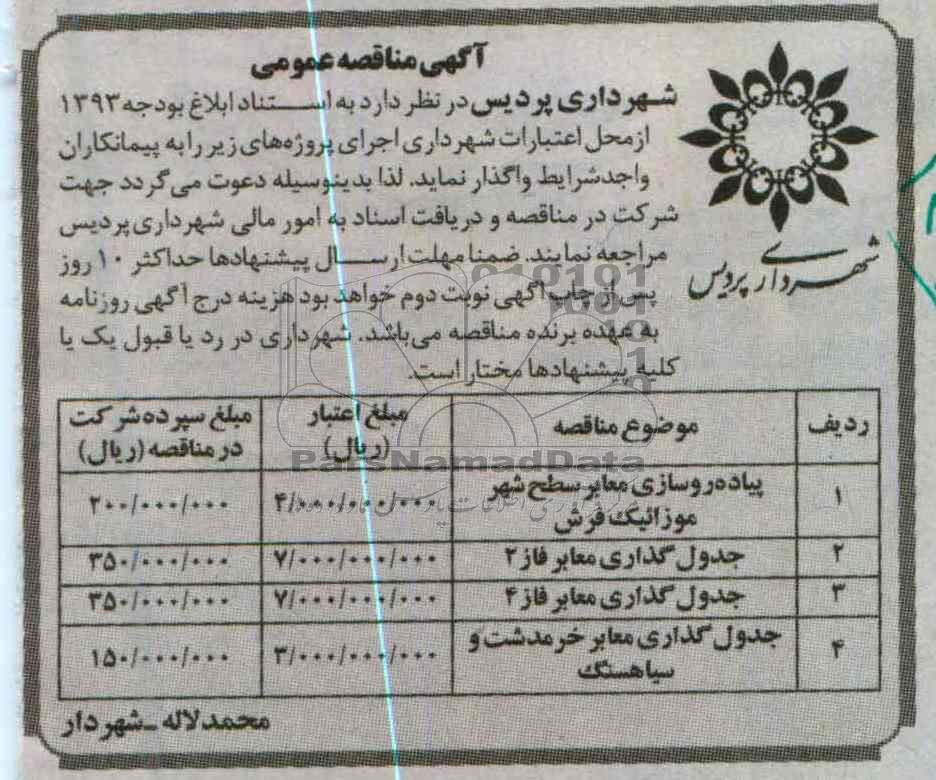 آگهی مناقصه عمومی
شهرداری پردیس در نظر دارد به استناد ابلاغ بودجه ۱۳۹۳
از محل اعتبارات شهرداری اجرای پروژه‌های زیر را به پیمانکاران
واجد شرایط واگذار نماید. لذا بدینوسیله دعوت می‌گردد جهت
شرکت در مناقصه و دریافت اسناد به امور مالی شهرداری پردیس
مراجعه نمایند. ضمنا مهلت ارسال پیشنهادها حداکثر ۱۰ روز
پس از چاپ آگهی نوبت دوم خواهد بود هزینه درج آگهی روزنامه
به عهده برنده مناقصه می‌باشد. شهرداری در رد یا قبول یک یا
کلیه پیشنهادها مختار است.
شهرداری پردیس
ردیف موضوع مناقصه مبلغ اعتبار (ریال) مبلغ سپرده شرکت در مناقصه (ریال)
۱ پیاده‌روسازی معابر سطح شهر موزائیک فرش ۴/۰۰۰/۰۰۰/۰۰۰ ۲۰۰/۰۰۰/۰۰۰
۲ جدول گذاری معابر فاز ۲ ۷/۰۰۰/۰۰۰/۰۰۰ ۳۵۰/۰۰۰/۰۰۰
۳ جدول گذاری معابر فاز ۴ ۷/۰۰۰/۰۰۰/۰۰۰ ۳۵۰/۰۰۰/۰۰۰
۴ جدول گذاری معابر خرمدشت و سیاهسنگ ۳/۰۰۰/۰۰۰/۰۰۰ ۱۵۰/۰۰۰/۰۰۰
محمد لاله ـ شهردار
ParsNamadData